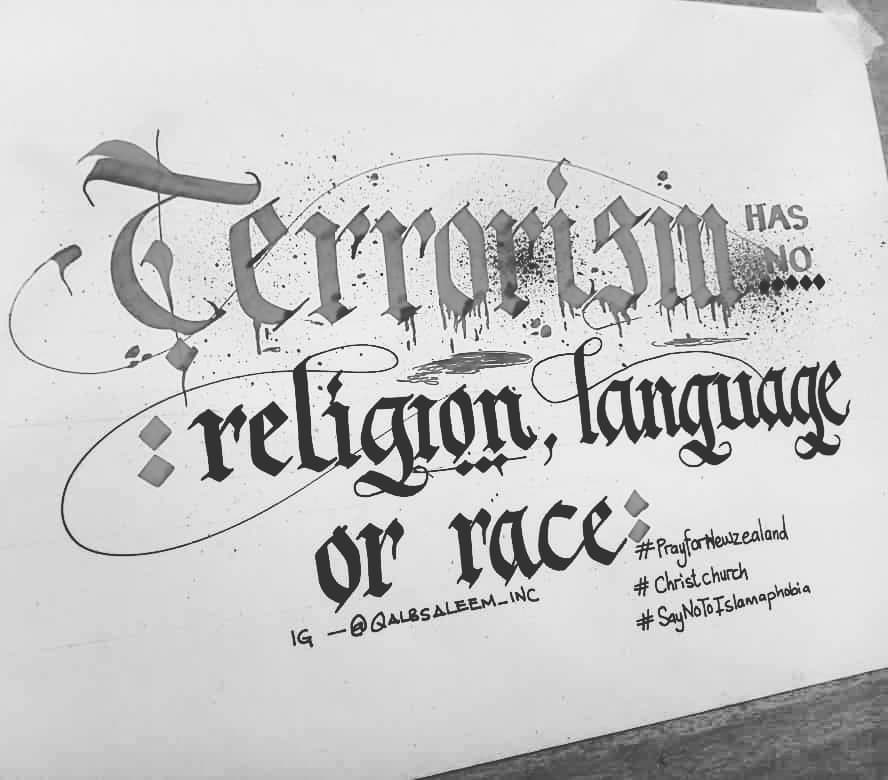 Terrorism HAS NO
religion, language
or race
IG - @QALBSALEEM_INC
#PrayforNewzealand
# Christchurch
# SayNoToIslamaphobia